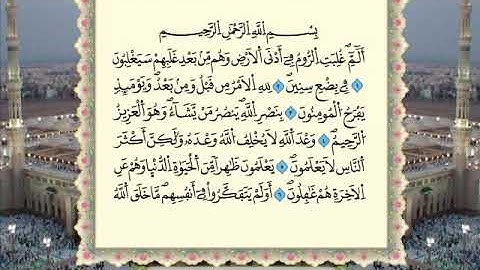 بِسْمِ اللَّهِ الرَّحْمَٰنِ الرَّحِيمِ
أَلَمِّ غُلِبَتِ الرُّومُ فِي أَدْنَى الْأَرْضِ وَهُم مِّنْ بَعْدِ غَلَبِهِمْ سَيَغْلِبُونَ
١ فِي بِضْعِ سِنِينَ ٢ لِلَّهِ الْأَمْرُ مِن قَبْلُ وَمِنْ بَعْدُ وَيَوْمَئِذٍ
يَفْرَحُ الْمُومِنُونَ ٣ بِنَصْرِ اللَّهِ يَنصُرُ مَنْ يَّشَاءُ وَهُوَ الْعَزِيزُ
الرَّحِيمُ ٤ وَعْدَ اللَّهِ لَا يُخْلِفُ اللَّهُ وَعْدَهُ وَلَٰكِنَّ أَكْثَرَ
النَّاسِ لَا يَعْلَمُونَ ٥ يَعْلَمُونَ ظَٰهِرًا مِّنَ الْحَيَوٰةِ الدُّنْيَا وَهُمْ عَنِ
الْآخِرَةِ هُمْ غَٰفِلُونَ ٦ أَوَلَمْ يَتَفَكَّرُوا فِي أَنفُسِهِم مَّا خَلَقَ اللَّهُ